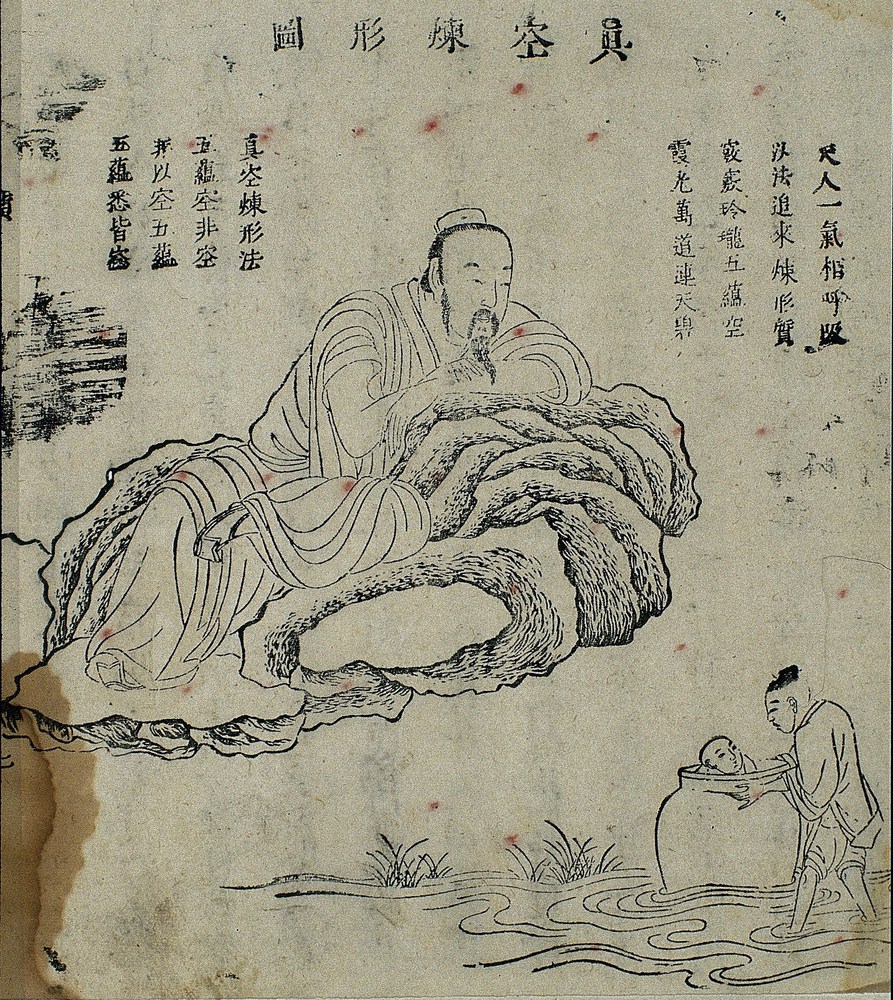 眞空煉形圖
天人一氣相呼吸
以法追來煉形質
竅竅玲瓏五蘊空
霞光萬道連天
真空煉形法
五蘊空非空
非以空五蘊
五蘊悉皆空